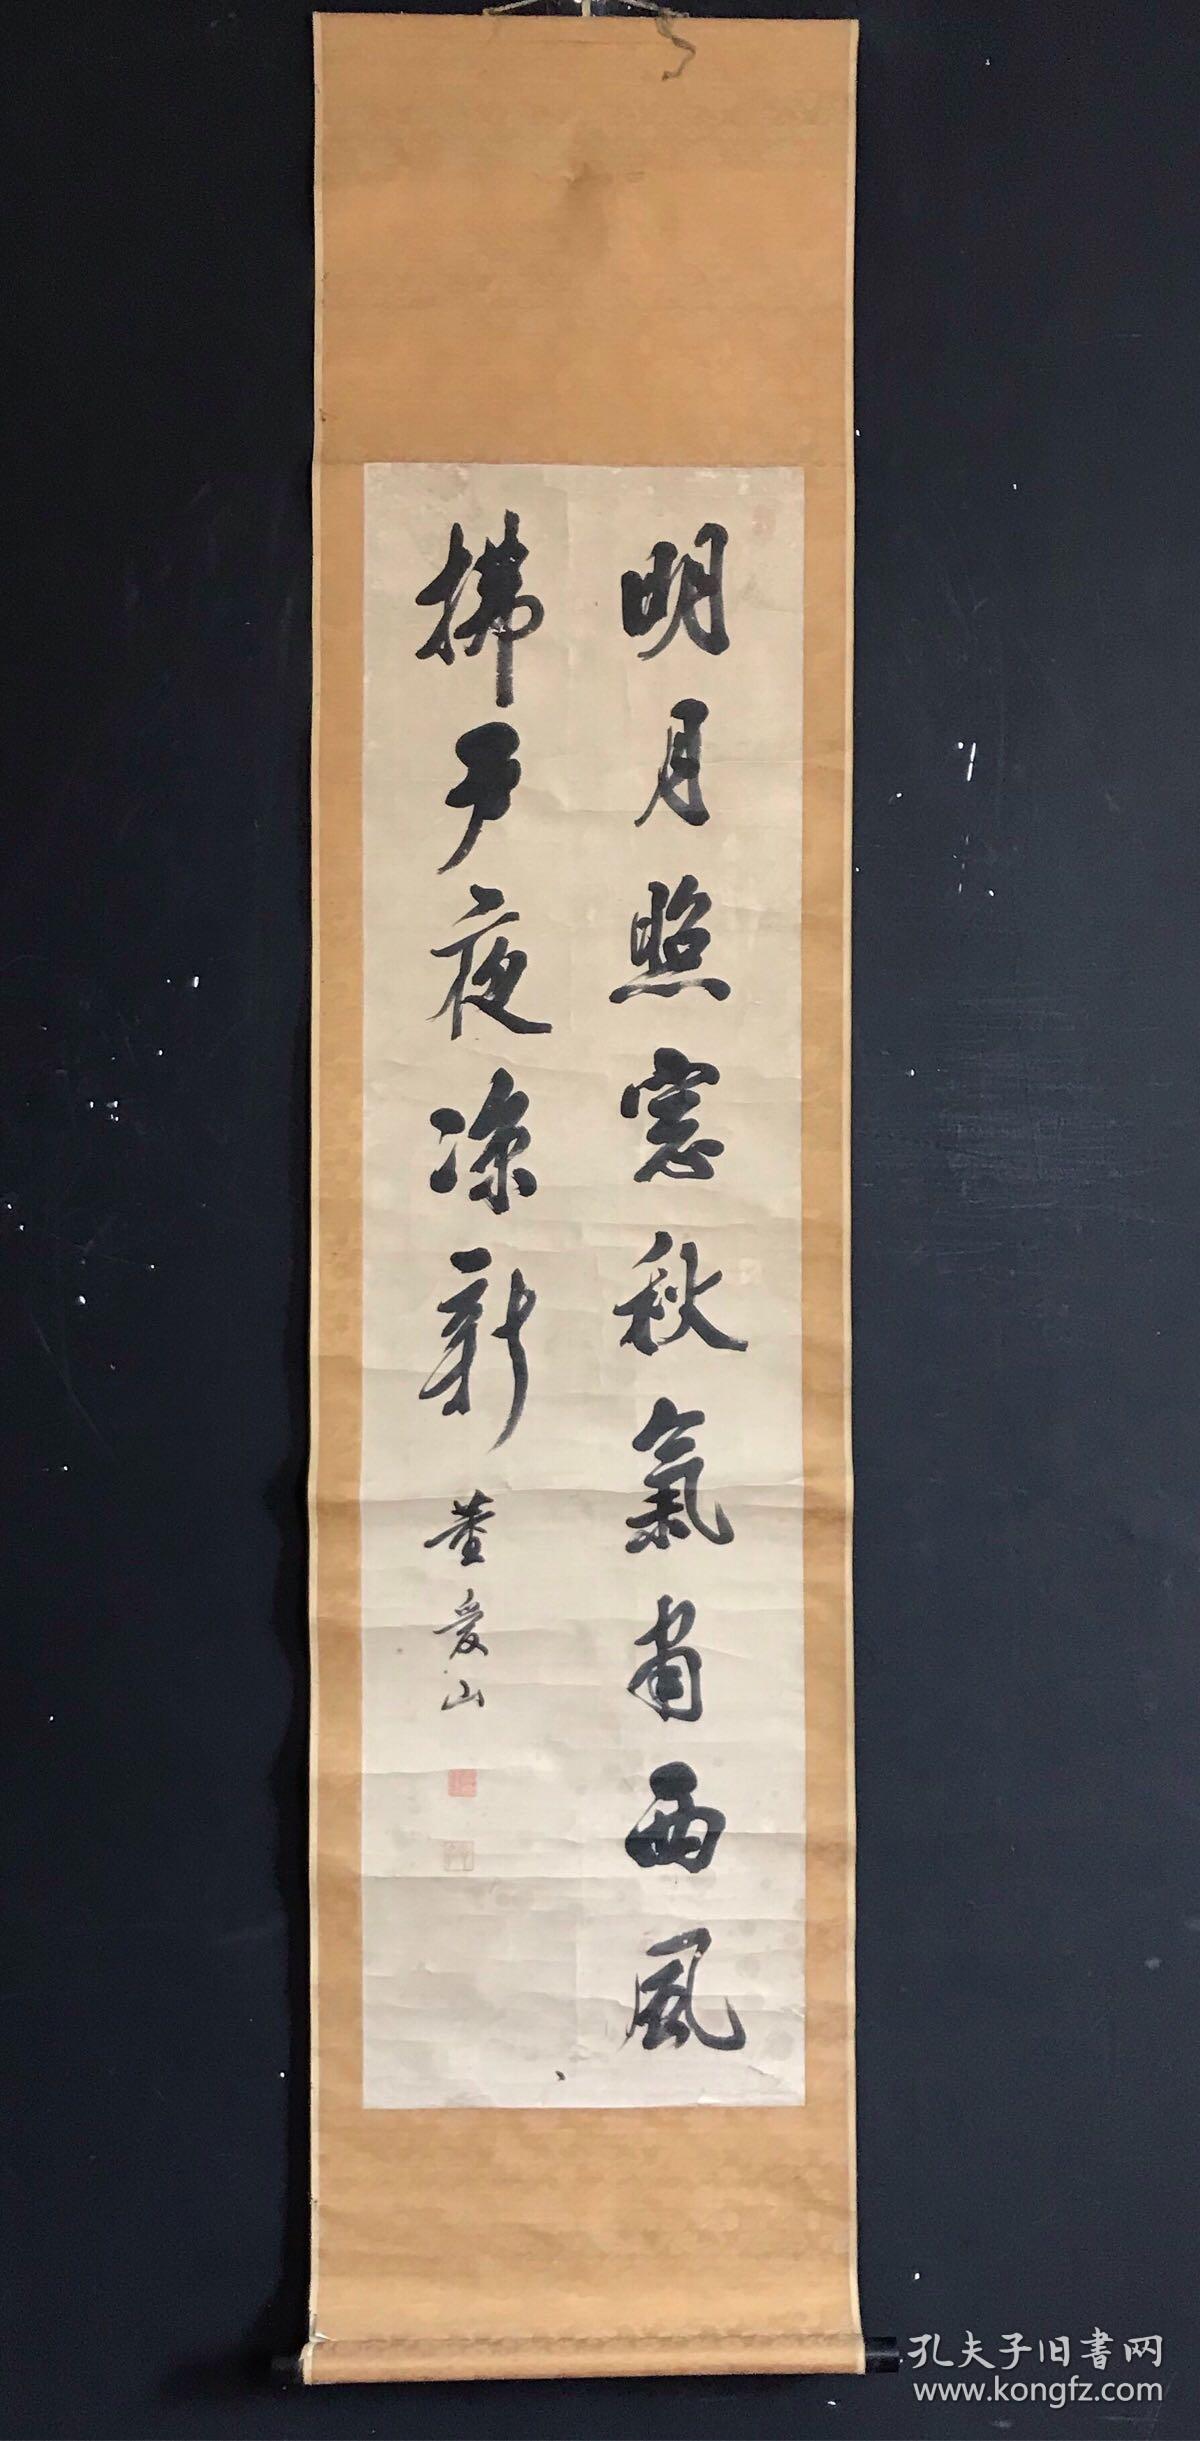 明月照窓秋氣肅西風
拂戶夜凉新
董愛山
孔夫子旧書网
www.kongfz.com